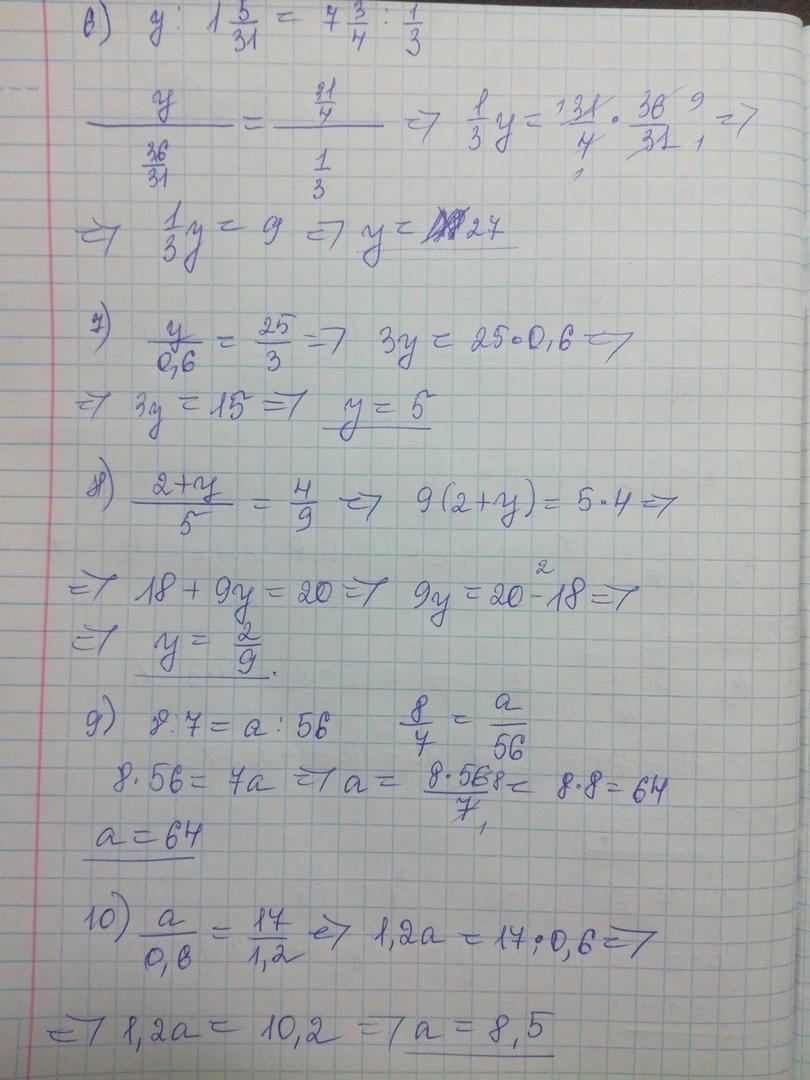 6) y : 1 5/31 = 7 3/4 : 1/3
y / (36/31) = (31/4) / (1/3) => 1/3 y = 31/4 · 36/31 =>
=> 1/3 y = 9 => y = 27
7) y/0,6 = 25/3 => 3y = 25·0,6 =>
=> 3y = 15 => y = 5
8) (2+y)/5 = 4/9 => 9(2+y) = 5·4 =>
=> 18 + 9y = 20 => 9y = 20 - 18 =>
=> y = 2/9.
9) 8 : 7 = a : 56 8/7 = a/56
8·56 = 7a => a = 8·56/7 = 8·8 = 64
a = 64
10) a/0,6 = 17/1,2 => 1,2a = 17·0,6 =>
=> 1,2a = 10,2 => a = 8,5